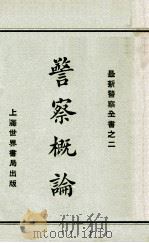 最新警察全書之二
警察概論
上海世界書局出版